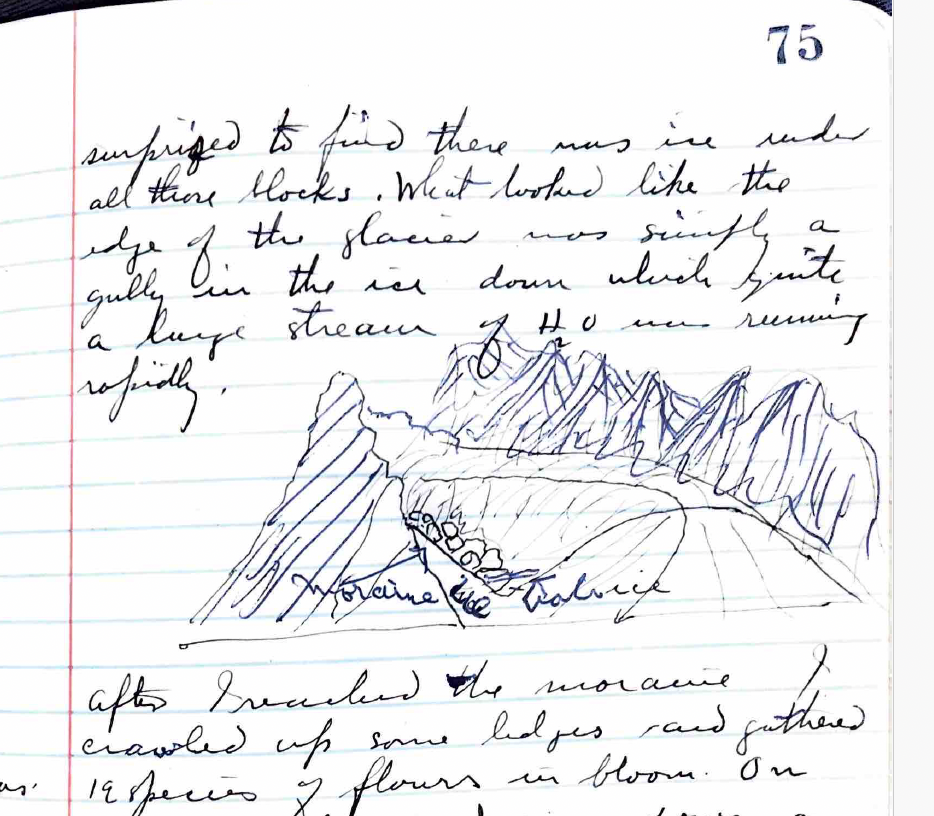 75
surprized to find there was ice under
all those blocks. What looked like the
edge of the glacier was simply a
gully in the ice down which quite
a large stream of H2O was running
rapidly.
moraine ice
after I reached the moraine I
crawled up some ledges and gathered
19 species of flours in bloom. On